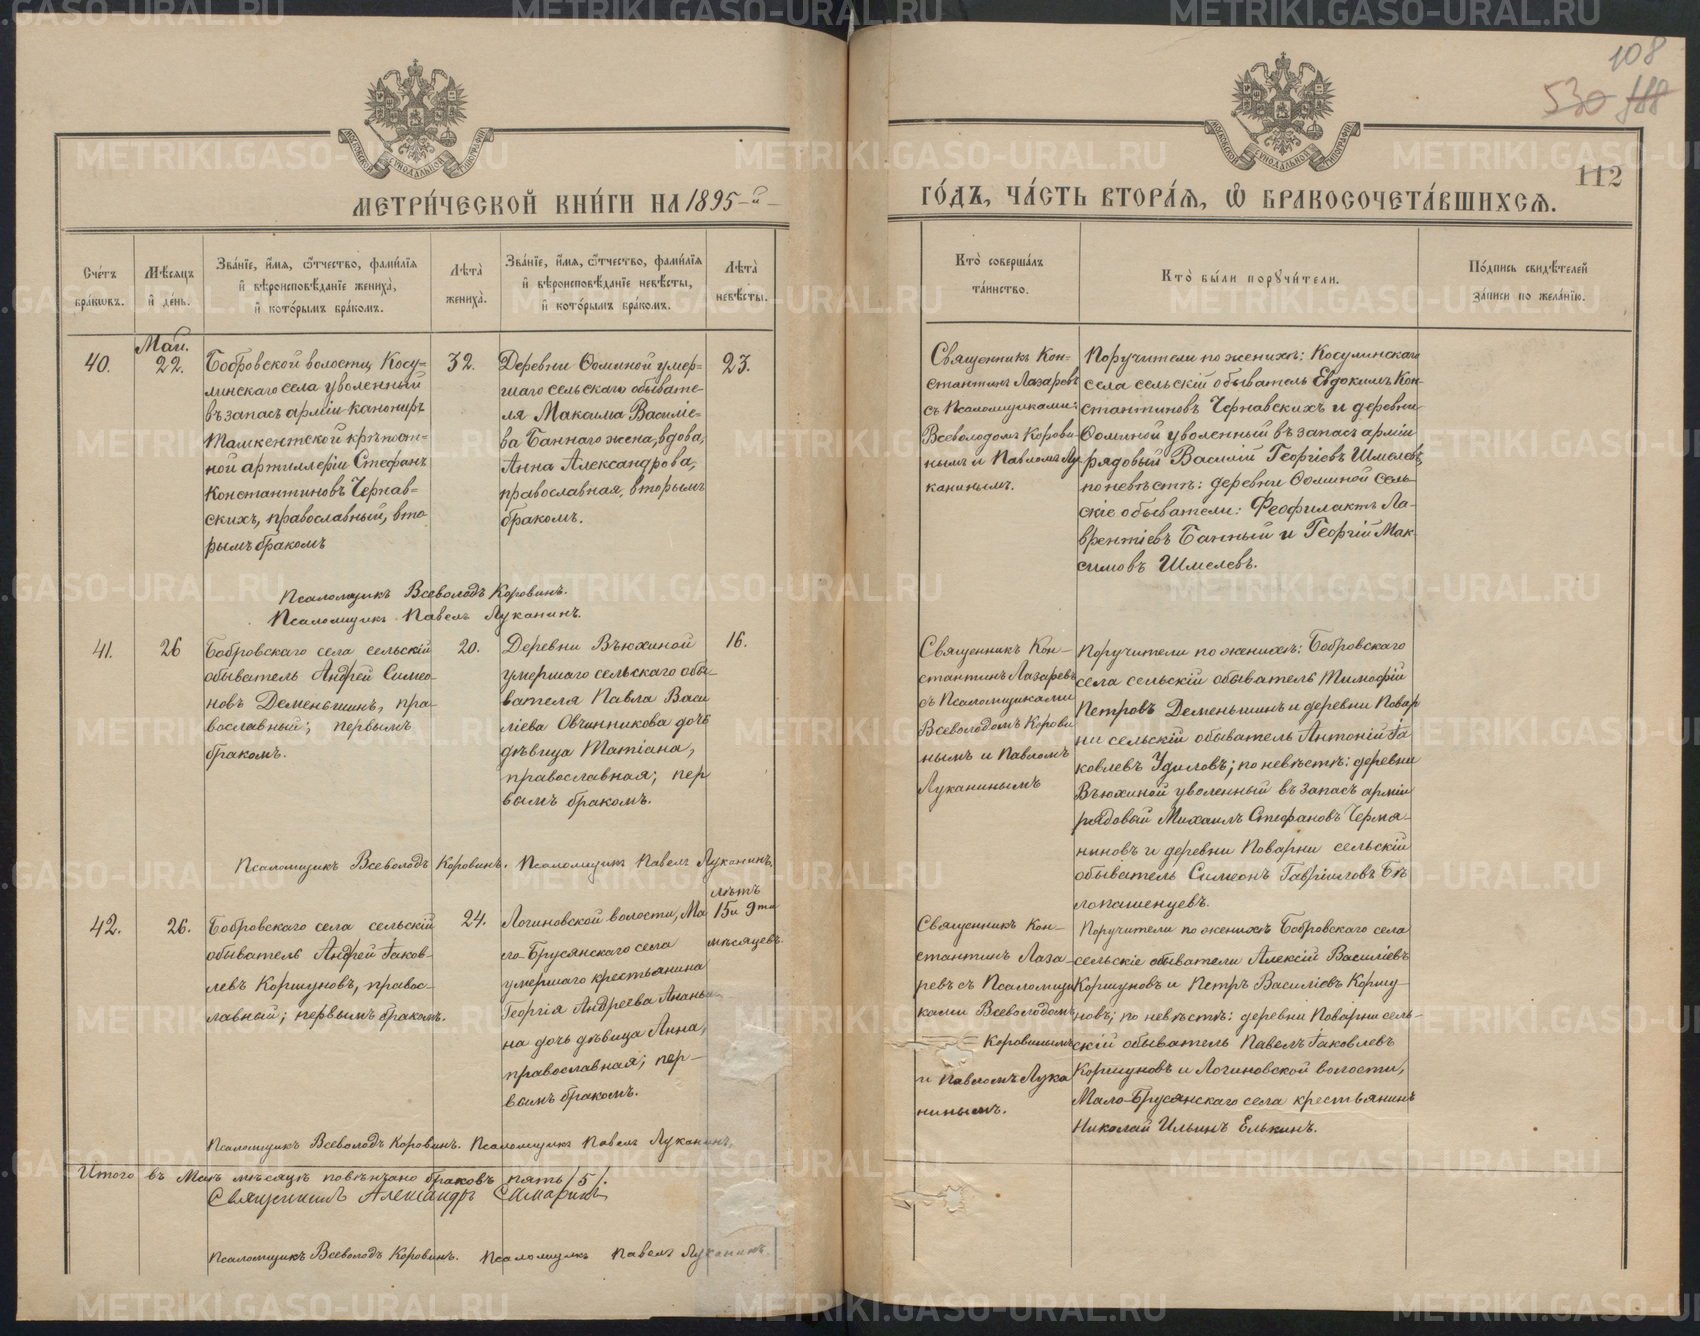 METRIKI.GASO-URAL.RU
108
530 188
112
МОСКОВСКОЙ СѴНОДАЛЬНОЙ ТИПОГРАФІИ
МОСКОВСКОЙ СѴНОДАЛЬНОЙ ТИПОГРАФІИ
МЕТРИ́ЧЕСКОЙ КНИ́ГИ НА 1895-й
ГО́ДЪ, ЧА́СТЬ ВТОРА́Я, Ѡ БРАКОСОЧЕТА́ВШИХСЯ.
Сче́тъ бра́кѡвъ.
Мѣ́сяцъ и҆ де́нь.
Зва́нїе, и҆́мя, ѻ҆́тчество, фами́лїя
и҆ вѣроисповѣ́данїе жениха̀,
и҆ кото́рымъ бра́комъ.
Лѣта̀ жениха̀.
Зва́нїе, и҆́мя, ѻ҆́тчество, фами́лїя
и҆ вѣроисповѣ́данїе невѣ́сты,
и҆ кото́рымъ бра́комъ.
Лѣта̀ невѣ́сты.
Кто̀ соверша́лъ
та́инство.
Кто̀ бы́ли порꙋчи́тели.
По́дпись свидѣ́телей
за́писи по жела́нїю.
40.
Маи.
22.
Бобровской волости, Косу-
линскаго села уволенный
въ запасъ арміи канониръ
Ташкентской крѣпост-
ной артиллеріи Стефанъ
Константиновъ Чернав-
скихъ, православный, вто
рымъ бракомъ
32.
Деревни Ѳоминой умер-
шаго сельскаго обывате-
ля Максима Василіе-
ва Баннаго жена, вдова,
Анна Александрова,
православная, вторымъ
бракомъ.
23.
Священникъ Кон-
стантинъ Лазаревъ
съ Псаломщиками:
Всеволодомъ Корови-
нымъ и Павломъ Лу
канинымъ.
Поручители по женихѣ: Косулинскаго
села сельскій обыватель Евдокимъ Кон-
стантиновъ Чернавскихъ и деревни
Ѳоминой уволенный въ запасъ арміи
рядовый Василій Георгіевъ Шмелевъ,
по невѣстѣ: деревни Ѳоминой сель-
скіе обыватели: Феофилактъ Ла-
врентіевъ Банный и Георгій Мак-
симовъ Шмелевъ.
Псаломщикъ Всеволодъ Коровинъ.
Псаломщикъ Павелъ Луканинъ.
41.
26
Бобровскаго села сельскій
обыватель Андрей Симео-
новъ Деменьшинъ, пра-
вославный; первымъ
бракомъ.
20.
Деревни Вьюхиной
умершаго сельскаго обы-
вателя Павла Васи
ліева Овчинникова дочь
дѣвица Татіана,
православная; пер
вымъ бракомъ.
16.
Священникъ Кон-
стантинъ Лазаревъ
съ Псаломщиками
Всеволодомъ Корови
нымъ и Павломъ
Луканинымъ
Поручители по женихѣ: Бобровскаго
села сельскій обыватель Тимофій
Петровъ Деменьшинъ и деревни Повар
ни сельскій обыватель Антоній Іа-
ковлевъ Удиловъ; по невѣстѣ: деревни
Вьюхиной уволенный въ запасъ арміи
рядовый Михаилъ Стефановъ Чермя-
ниновъ и деревни Поварни сельскій
обыватель Симеонъ Гавріиловъ Бѣ
лопашенцевъ.
Псаломщикъ Всеволодъ Коровинъ. Псаломщикъ Павелъ Луканинъ.
42.
26.
Бобровскаго села сельскій
обыватель Андрей Іаков-
левъ Коршуновъ, правос-
лавный; первымъ бракомъ.
24.
Логиновской волости, Ма
ло-Брусянскаго села
умершаго крестьянина
Георгія Андреева Ананьи
на дочь дѣвица Анна,
православная; пер-
вымъ бракомъ.
лѣтъ
15 и 9ти
мѣсяцевъ.
Священникъ Кон-
стантинъ Лаза-
ревъ съ Псаломщи
ками Всеволодомъ
Коровинымъ
и Павломъ Лука
нинымъ.
Поручители по женихѣ Бобровскаго села
сельскіе обыватели Алексій Василіевъ
Коршуновъ и Петръ Василіевъ Коршу-
новъ; по невѣстѣ: деревни Поварни сель-
скій обыватель Павелъ Іаковлевъ
Коршуновъ и Логиновской волости,
Мало-Брусянскаго села крестьянинъ
Николай Ильинъ Елькинъ.
Псаломщикъ Всеволодъ Коровинъ. Псаломщикъ Павелъ Луканинъ.
Итого въ Маѣ мѣсяцѣ повѣнчано браковъ пять /5/.
Священникъ Александръ Самаринъ
Псаломщикъ Всеволодъ Коровинъ. Псаломщикъ Павелъ Луканинъ.